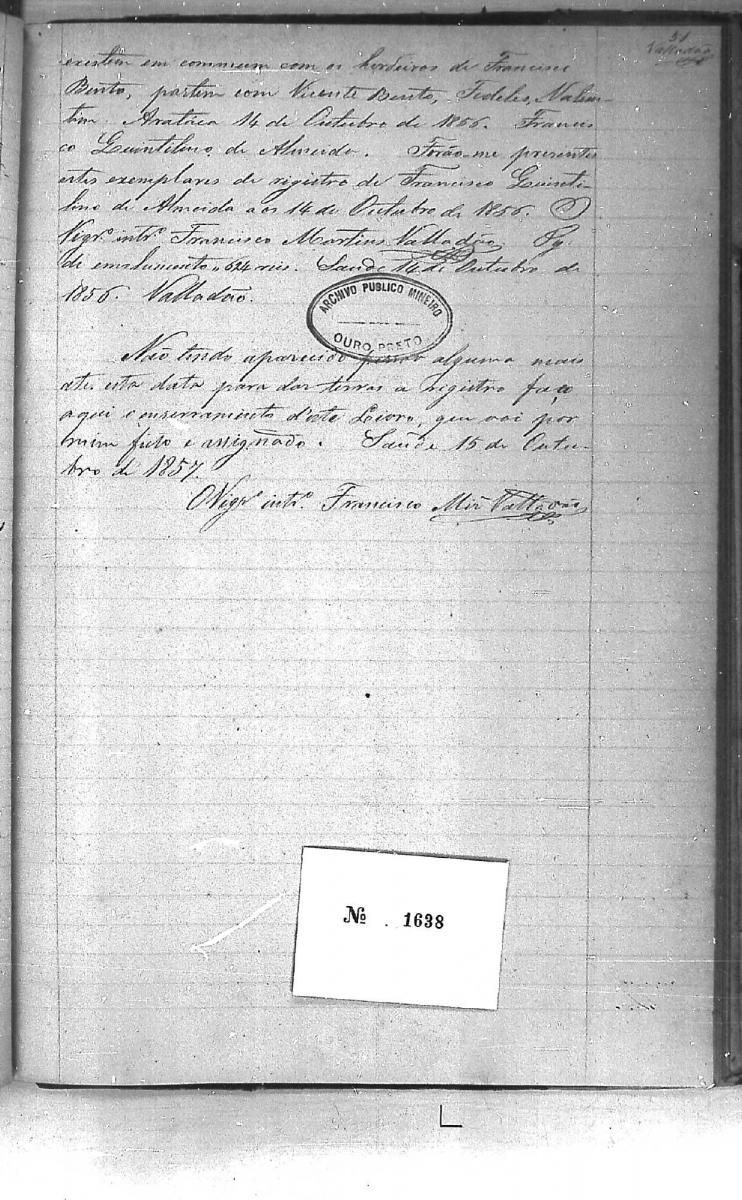 51
Valladão
existem em commum com os herdeiros de Francisco
Bento, partem com Vicente Bento, Fideles, Valen-
tim. 14 de Outubro de 1856. Francis
co Quintilino de Almeida. Forão-me presentes
estes exemplares de registro de Francisco Quinti-
lino de Almeida aos 14 de Outubro de 1856. O
Vigrº intrº Francisco Martins Valladão Pg.
de emolumento 624 reis. Saude 14 de Outubro de
1856. Valladão.
ARCHIVO PUBLICO MINEIRO
OURO PRETO
Não tendo aparecido alguma mais
ate esta data para dar terras a registro faço
aqui o enserramento d'este Livro, que vai por
mim feito e assignado. Saude 15 de Outu-
bro de 1857.
O Vigrº intrº. Francisco Miz Valladão
Nº. 1638